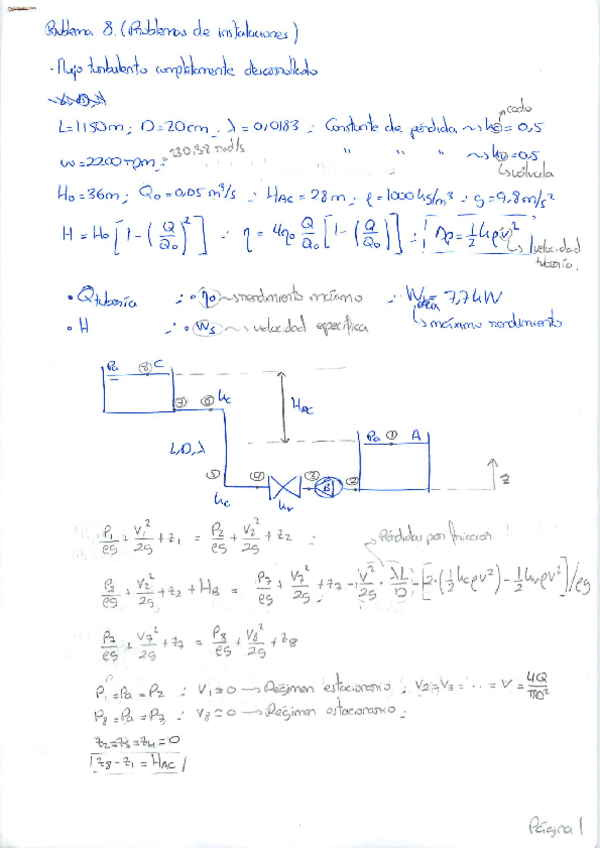 Problema 8. (Problemas de instalaciones)
· Flujo turbulento completamente desarrollado
L=1150m ; D=20cm ; λ=0,0183 ; Constante de pérdida ~> kc = 0,5
codo
ω=2200rpm = 230,38 rad/s " " " " ~> kv = 0,5
↳ válvula
H0=36m ; Q0=0,05 m³/s ; HAC=28m ; ρ=1000kg/m³ ; g=9,8m/s²
H = H0 [1-(Q/Q0)²] ; η = 4η0 Q/Q0 [1-(Q/Q0)] ; Δp = 1/2 kρv²
↳ velocidad tubería.
• Qtubería ; • η0 ~> rendimiento máximo ; W = 7,7kW
↳ máximo rendimiento
• H ; • Ws ~> velocidad específica
Pa ⑧ C
⑦ ⑥ kc
HAC
L,D,λ
Pa ① A
⑤ ④ ③ B ②
kc kv
z
P1/ρg + V1²/2g + z1 = P2/ρg + V2²/2g + z2 ;
Pérdidas por fricción
P2/ρg + V2²/2g + z2 + HB = P7/ρg + V7²/2g + z7 - V²/2g · λL/D - [2·(1/2 kcρv²) - 1/2 kvρv²]/ρg
P7/ρg + V7²/2g + z7 = P8/ρg + V8²/2g + z8
P1 = Pa = P2 ; V1 ≈ 0 → Régimen estacionario ; V2=V3= ... = V = 4Q/πD²
P8 = Pa = P7 ; V8 ≈ 0 → Régimen estacionario ;
z2=z3=z4=0
z8 - z1 = HAC
Página 1